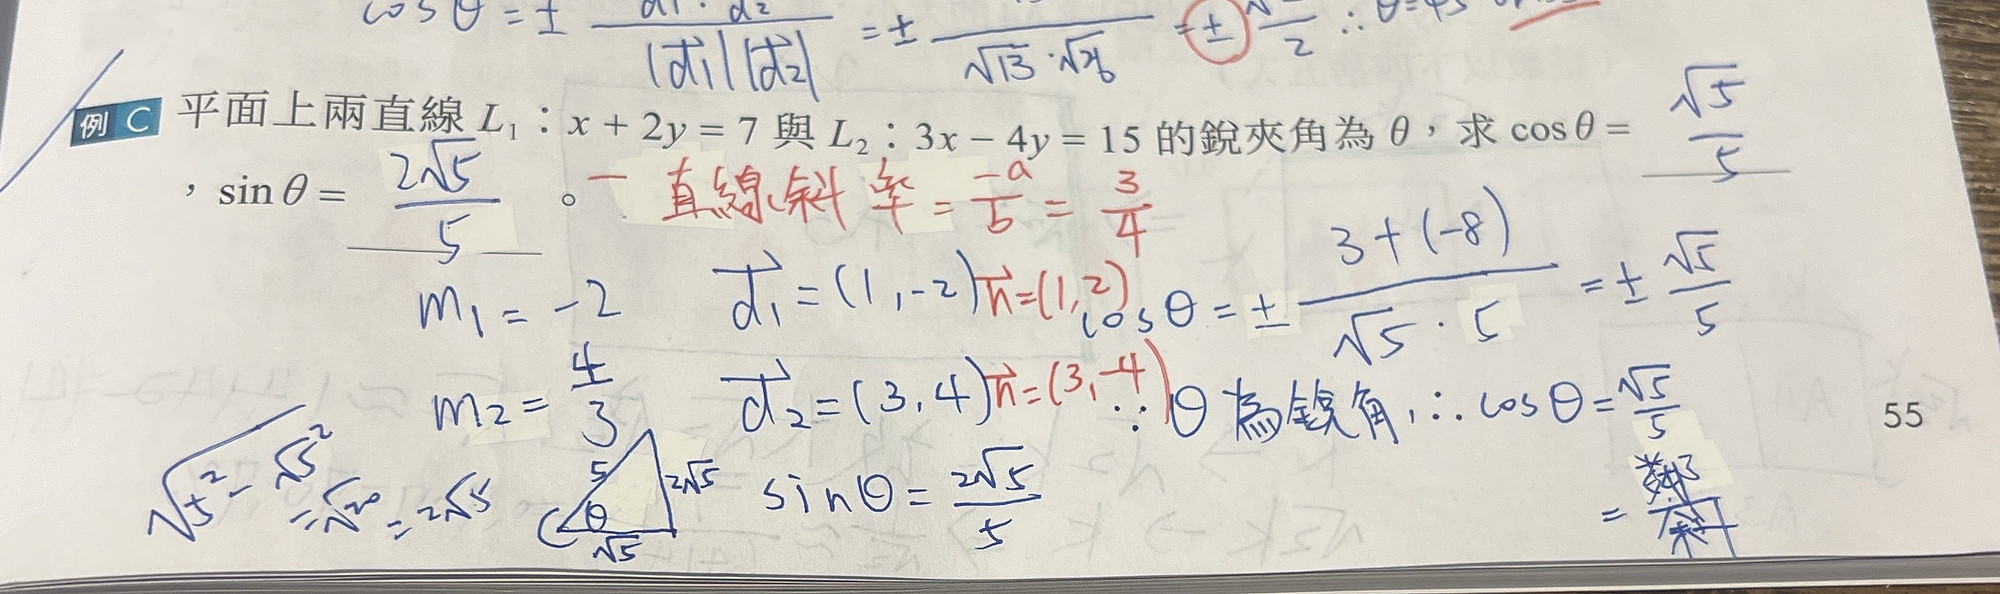 cos θ = ± d1 · d2 / |d1| |d2| = ± / √13 · √26 = ± / 2 ∴ θ = 45
例 C 平面上兩直線 L₁：x + 2y = 7 與 L₂：3x − 4y = 15 的銳夾角為 θ，求 cos θ = √5/5
，sin θ = 2√5/5 。
一直線斜率 = -a/b = 3/4
m₁ = -2
d₁ = (1, -2) n = (1, 2)
cos θ = ± 3 + (-8) / √5 · 5 = ± √5/5
m₂ = 4/3
d₂ = (3, 4) n = (3, -4)
∵ θ 為銳角, ∴ cos θ = √5/5
= 鄰/斜
√5² - √5² = √20 = 2√5
5 2√5 θ √5
sin θ = 2√5/5
55